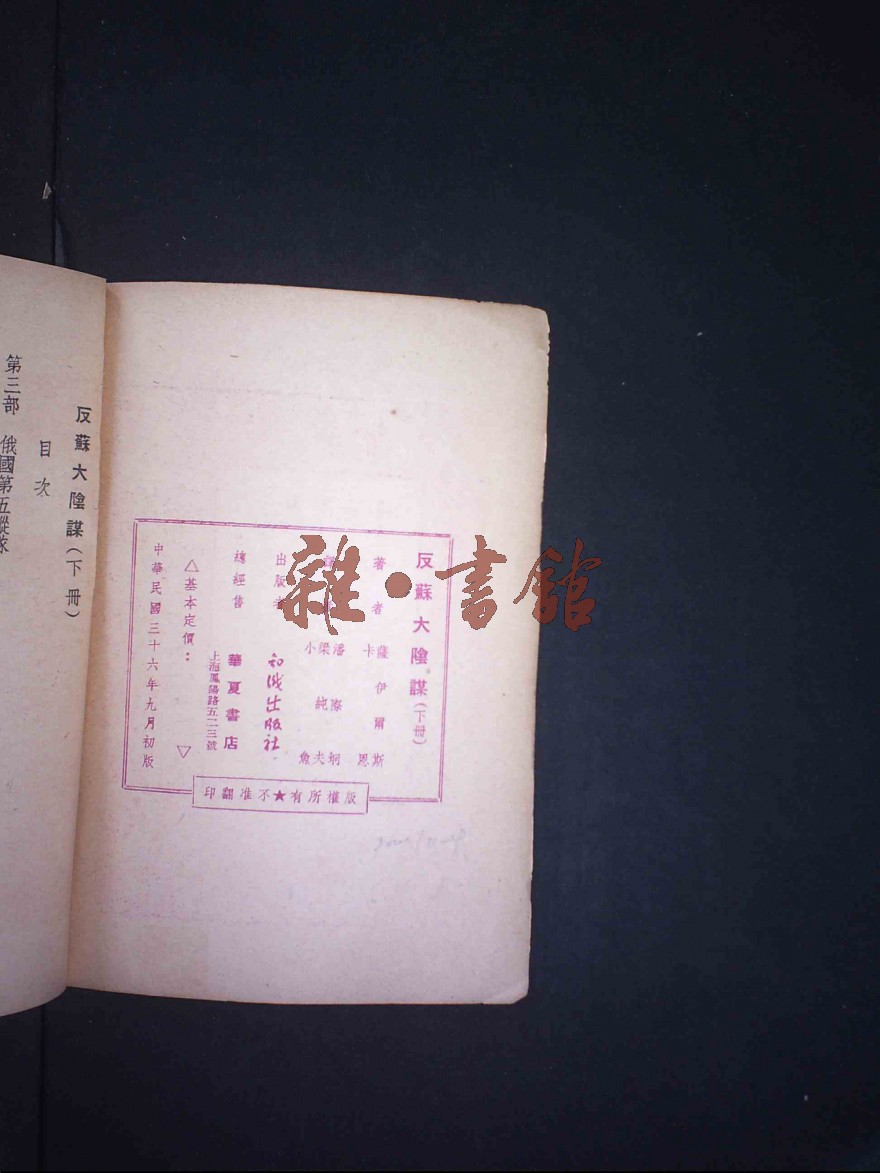 反蘇大陰謀（下冊）
著者 薩伊爾斯
卡恩
潘際坰
梁純夫
小魚
出版者 知識出版社
總經售 華夏書店
上海鳳陽路五二三號
△基本定價： ▽
中華民國三十六年九月初版
版權所有★不准翻印
反蘇大陰謀（下冊）
目次
第三部 俄國第五縱隊
雜·書館